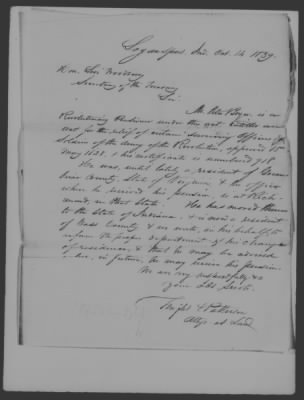 Logansport, Ind. Oct. 14 1839.
Hon. Levi Woodbury
Secretary of the Treasury
Sir:
Mr. Peter Bryan is a
Revolutionary Pensioner under the act Entitled an
act for the relief of certain Surviving Officers &
Soldiers of the Army of the Revolution, approved 15th
May 1828. & his certificate is numbered 918
He was, until lately a resident of Green
brier County, State of Virginia, & the office
where he received his pension, is at Rich
mond, in that State. He has moved thence
to the State of Indiana, & is now a resident
of Cass County & we write, in his behalf, to
inform the proper department of his change
of residence, & that he may be advised
in future, he may receive his pension.
We are very respectfully &c
Your Obt Servts
Wright &
Attys at Law